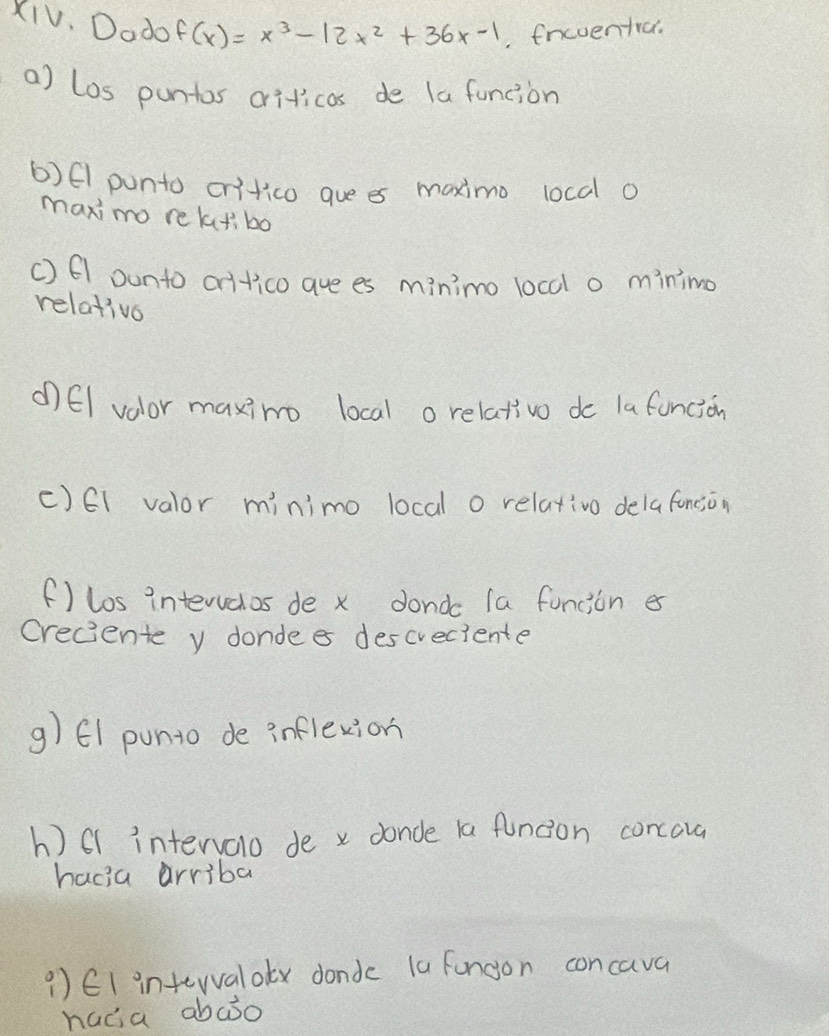 XIV. Dado f(x) = x³ - 12x² + 36x - 1, Encuentra.
a) Los puntos criticos de la función
b) El punto crítico que es maximo local o
maximo relatibo
c) El punto critico que es minimo local o minimo
relativo
d) El valor maximo local o relativo de la función
e) El valor minimo local o relativo de la función
f) Los intervalos de x donde la función es
Creciente y donde es descreciente
g) El punto de inflexion
h) El intervalo de x donde la funcion concava
hacia arriba
i) El intervalo de x donde la funcion concava
hacia abajo